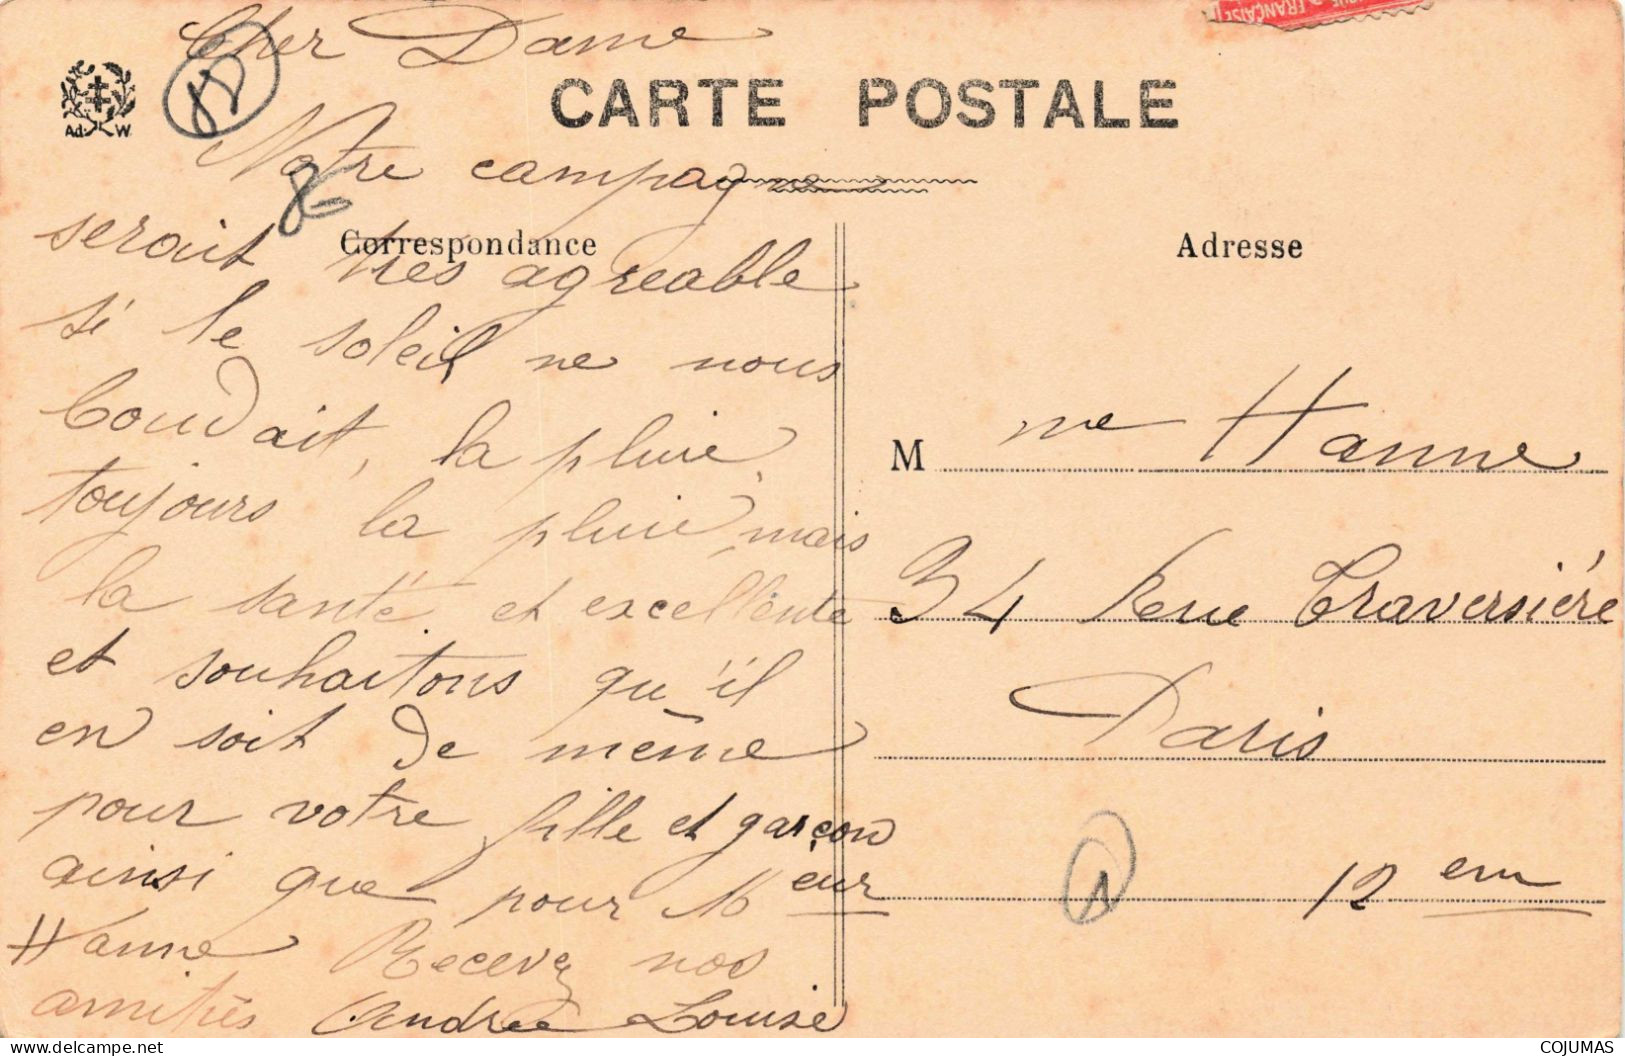 Cher Dame
CARTE POSTALE
Ad. W.
Notre campagne
serait très agréable
Correspondance
si le soleil ne nous
boudait, la pluie,
toujours la pluie, mais
la santé et excellente
et souhaitons qu'il
en soit de même
pour votre fille et garçon
ainsi que pour Meur
Hanne Recevez nos
amitiés Andrée Louise
FRANÇAISE
Adresse
Mme Hanne
34 Rue Traversière
Paris
1
12em
COJUMAS